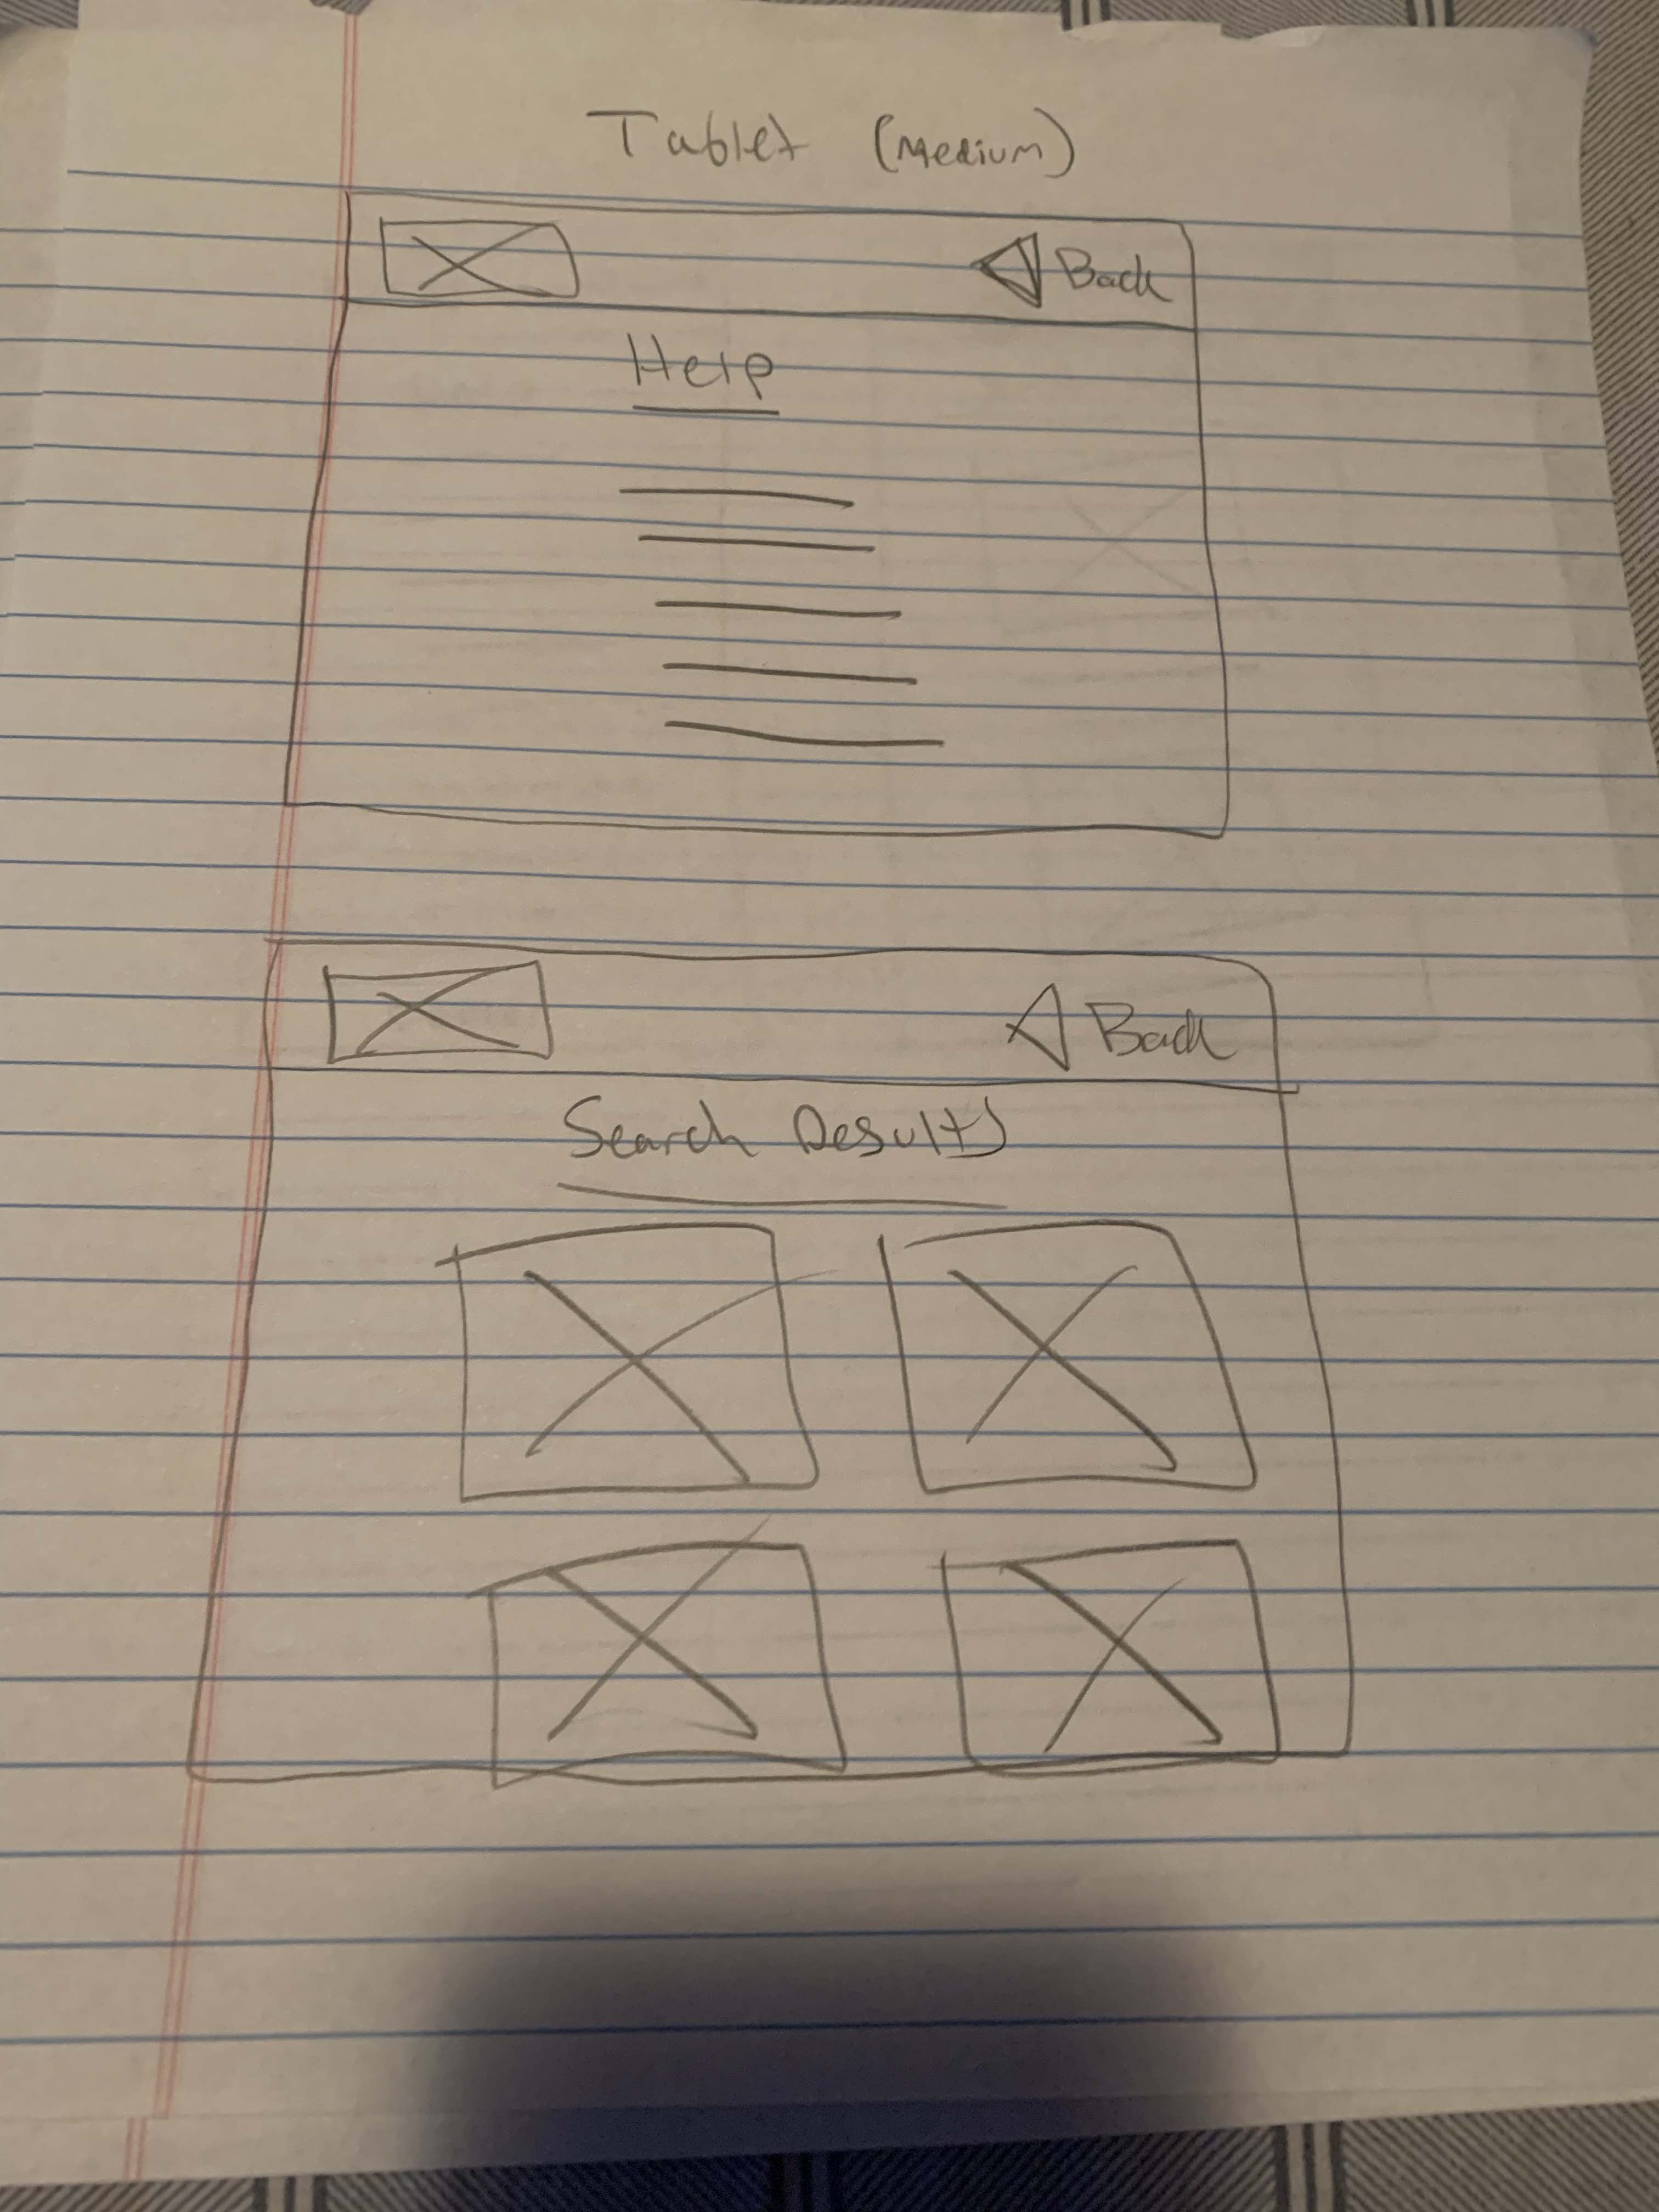 Tablet (Medium)
Back
Help
Back
Search Results